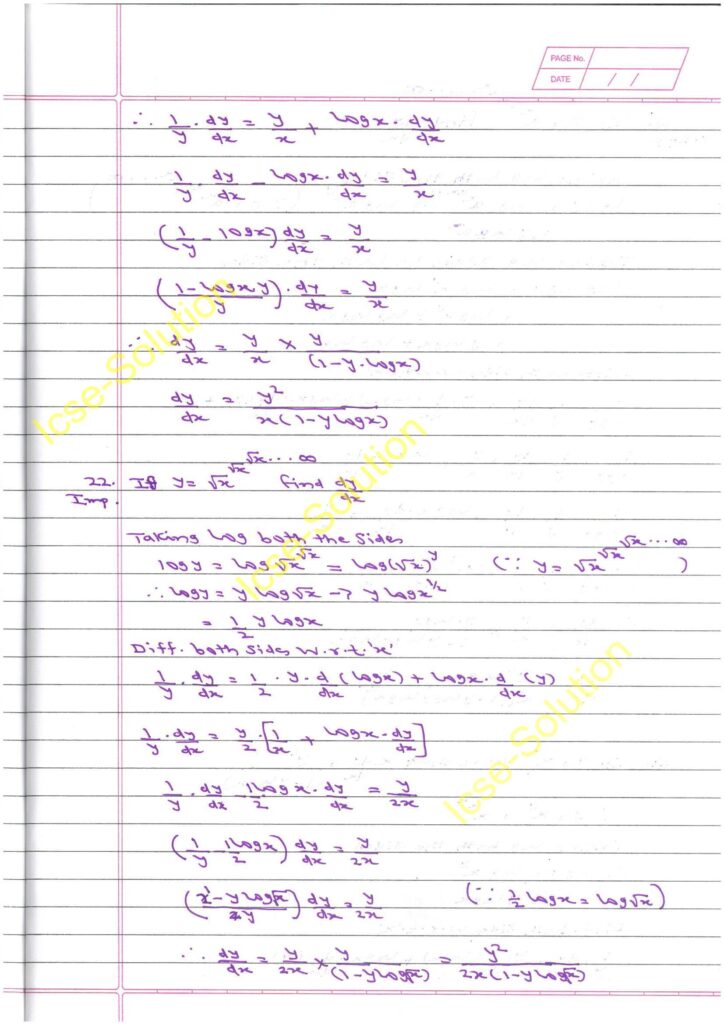 PAGE No.
DATE / /
∴ 1/y · dy/dx = y/x + log x · dy/dx
1/y · dy/dx - log x · dy/dx = y/x
(1/y - log x) dy/dx = y/x
(1 - log x y / y) · dy/dx = y/x
∴ dy/dx = y/x × y/(1 - y · log x)
dy/dx = y²/x(1 - y log x)
22. If y = √x^√x^√x ... ∞ find dy/dx
Imp.
Taking log both the sides
log y = log √x^√x^√x = log (√x)^y (∵ y = √x^√x^√x ... ∞)
∴ log y = y log √x → y log x^1/2
= 1/2 y log x
Diff. both sides w.r.t. 'x'
1/y · dy/dx = 1/2 · y · d/dx (log x) + log x · d/dx (y)
1/y · dy/dx = y/2 · [1/x + log x · dy/dx]
1/y · dy/dx - 1/2 log x · dy/dx = y/2x
(1/y - 1/2 log x) dy/dx = y/2x
(1 - y log √x / y) dy/dx = y/2x (∵ 1/2 log x = log √x)
∴ dy/dx = y/2x × y/(1 - y log √x) = y²/2x(1 - y log √x)
Icse-Solution
Icse-Solution
Icse-Solution